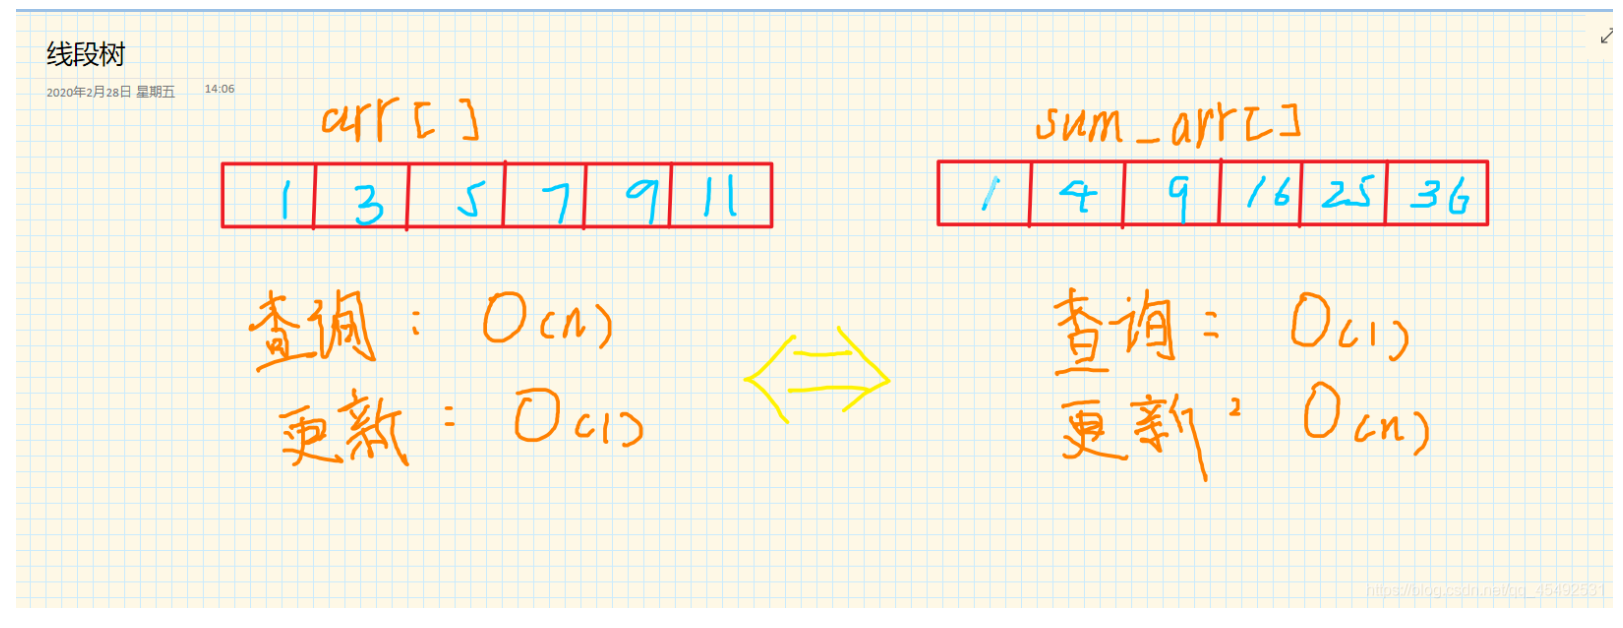 线段树
2020年2月28日 星期五 14:06
arr[ ] sum_arr[ ]
1 3 5 7 9 11 1 4 9 16 25 36
查询: O(n) 查询: O(1)
更新: O(1) 更新: O(n)
https://blog.csdn.net/qq_45492531